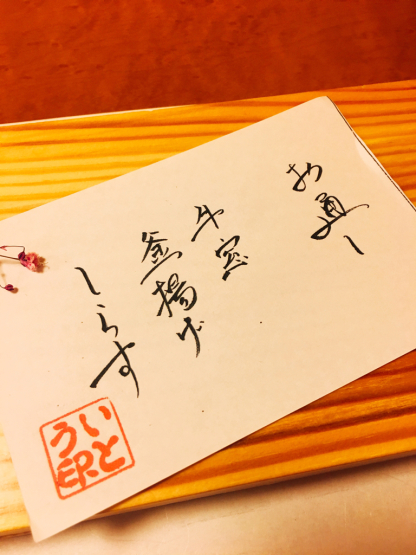 お通し
牛窓
釜揚げ
しらす
いと
う印